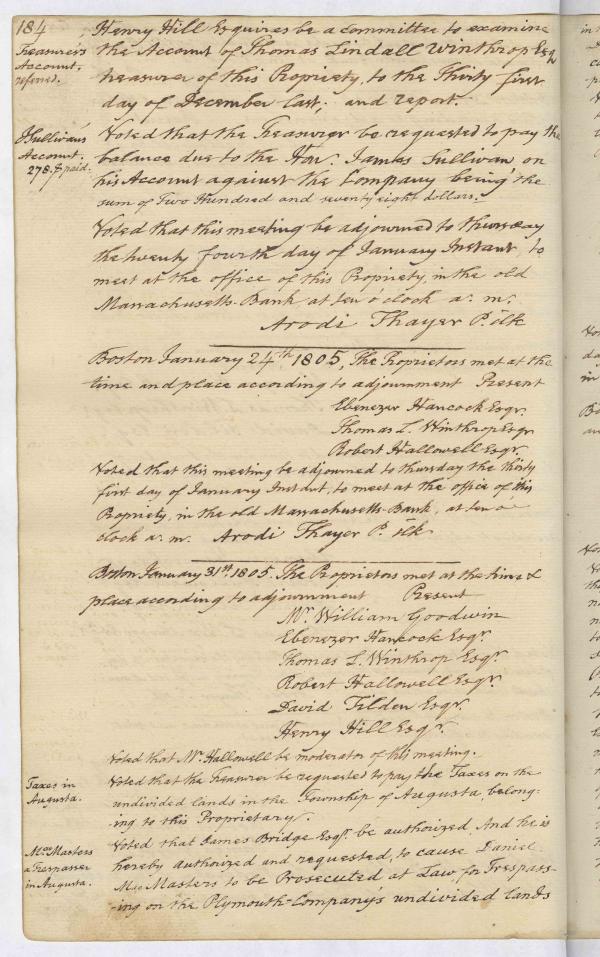 184
Treasurer's
Account.
referred.
Henry Hill Esquires be a committee to examine
the Account of Thomas Lindall Winthrop Esqr
treasurer of this Propriety, to the Thirty first
day of December last; and report.
J Sullivan's
Account.
278.$ paid.
Voted that the Treasurer be requested to pay the
balance due to the Hon. James Sullivan on
his Account against the Company being the
sum of Two Hundred and seventy eight dollars.
Voted that this meeting be adjourned to thursday
the twenty fourth day of January Instant, to
meet at the office of this Propriety, in the old
Massachusetts-Bank at ten o'clock a. m.
Arodi Thayer P. Clk
Boston January 24th 1805, The Proprietors met at the
time and place according to adjournment Present
Ebenezer Hancock Esqr.
Thomas L. Winthrop Esqr
Robert Hallowell Esqr.
Voted that this meeting be adjourned to thursday the thirty
first day of January Instant, to meet at the office of this
Propriety, in the old Massachusetts-Bank, at ten o'
clock a. m. Arodi Thayer P. Clk
Boston January 31st 1805. The Proprietors met at the time &
place according to adjournment Present
Mr. William Goodwin
Ebenezer Hancock Esqr.
Thomas L. Winthrop Esqr.
Robert Hallowell Esqr.
David Tilden Esqr.
Henry Hill Esqr.
Voted that Mr. Hallowell be moderator of this meeting.
Taxes in
Augusta.
Voted that the Treasurer be requested to pay the Taxes on the
undivided lands in the Township of Augusta, belong-
-ing to this Proprietary.
McMasters
a Trespasser
in Augusta.
Voted that James Bridge Esqr. be authorized, And he is
hereby authorized and requested, to cause Daniel
McMasters to be Prosecuted at Law, for Trespass-
-ing on the Plymouth-Company's undivided lands